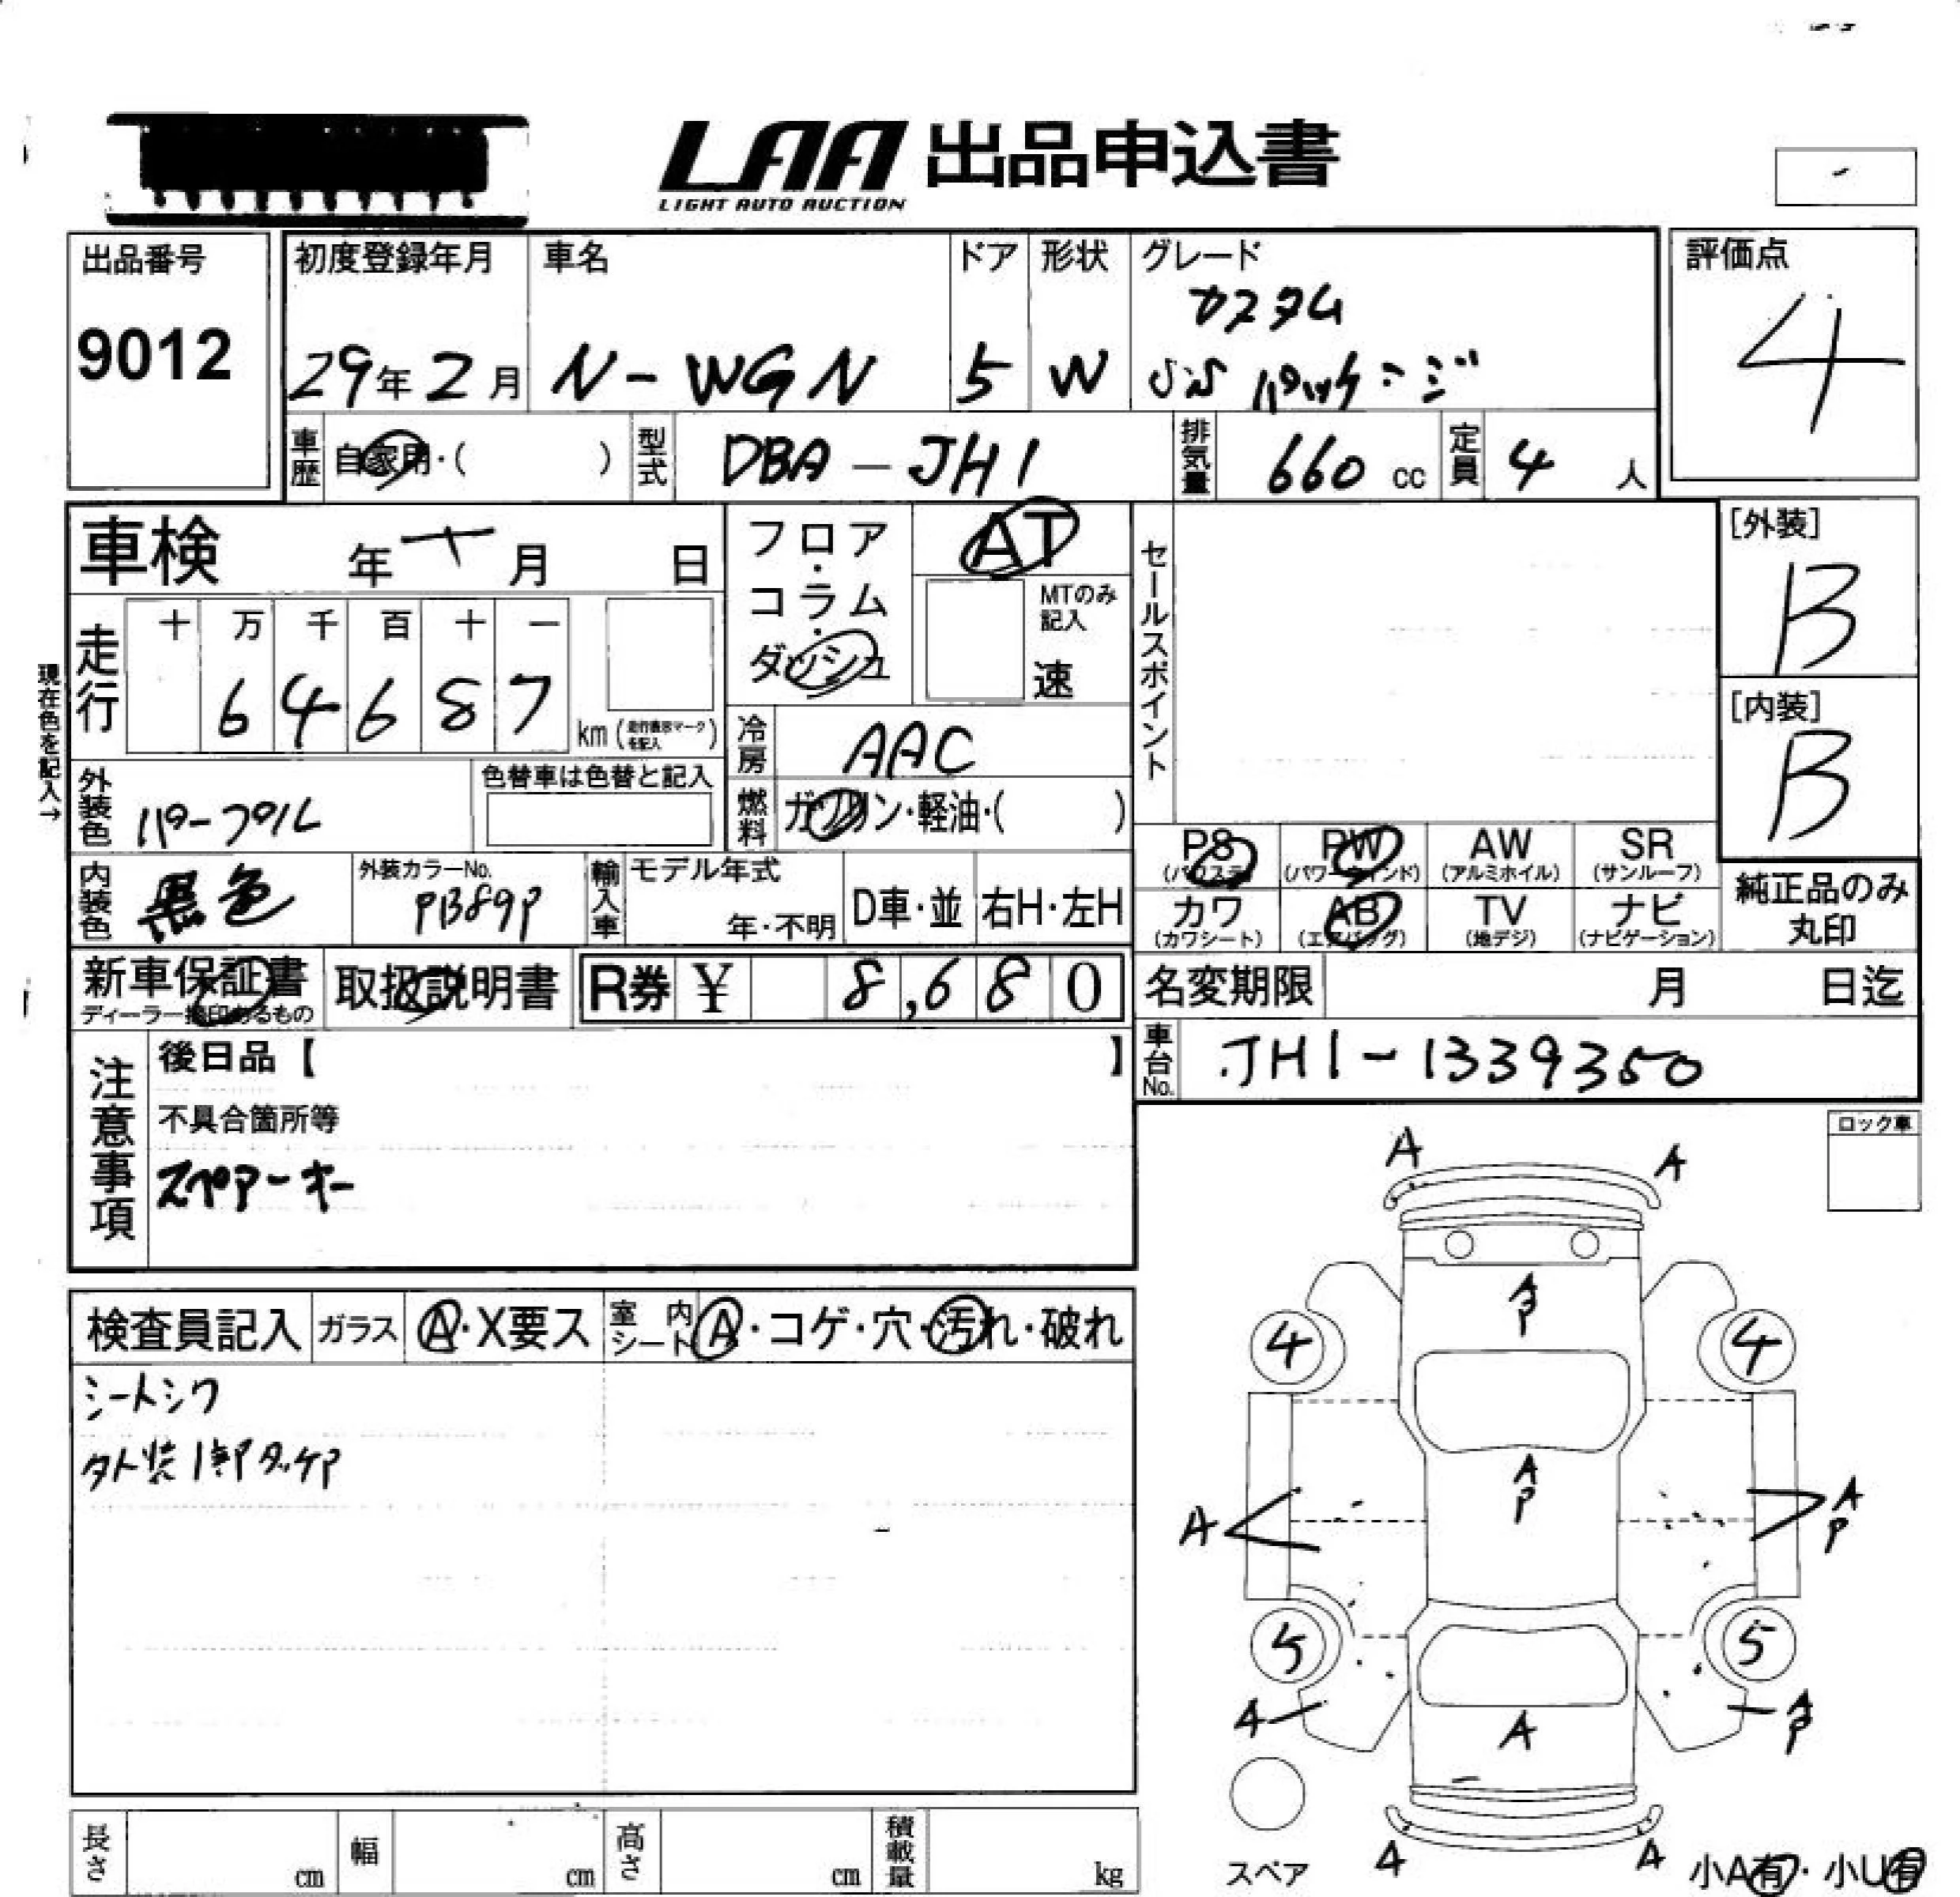 LAA 出品申込書
LIGHT AUTO AUCTION
出品番号
9012
初度登録年月
29年2月
車名
N-WGN
ドア
5
形状
W
グレード
カスタム
SS パッケージ
評価点
4
車歴
自家用・( )
型式
DBA-JH1
排気量
660 cc
定員
4 人
車検 年 月 日
走行
十 万 千 百 十 一
6 4 6 8 7
km (走行表示マークを記入)
現在色を記入→
フロア・コラム・ダッシュ
AT
MTのみ記入
速
冷房
AAC
燃料
ガソリン・軽油・( )
セールスポイント
[外装]
B
[内装]
B
外装色
パープル
色替車は色替と記入
内装色
黒色
外装カラーNo.
PB89P
輸入車
モデル年式
年・不明
D車・並
右H・左H
PS
(パワステ)
PW
(パワーウインド)
AW
(アルミホイル)
SR
(サンルーフ)
カワ
(カワシート)
AB
(エアバッグ)
TV
(地デジ)
ナビ
(ナビゲーション)
純正品のみ
丸印
新車保証書
ディーラー捺印あるもの
取扱説明書
R券 ¥ 8,680
名変期限 月 日迄
車台No.
JH1-1339350
注意事項
後日品【 】
不具合箇所等
スペアーキー
ロック車
検査員記入
ガラス
A・X要ス
室内シート
A・コゲ・穴・汚れ・破れ
シートシワ
外装1部タッチP
A
A
A
P
4
4
A
P
A
A
P
5
5
A
A
P
A
A
A
スペア
小A有・小U有
長さ cm
幅 cm
高さ cm
積載量 kg